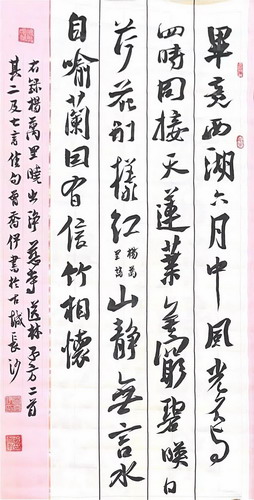 畢竟西湖六月中風光不與
四時同接天蓮葉無窮碧映日
荷花別樣紅
楊萬
里詩
山靜無言水
自喻蘭因有信竹相懷
右錄楊萬里曉出淨慈寺送林子方二首
其二及七言佳句喬伊書於古城長沙